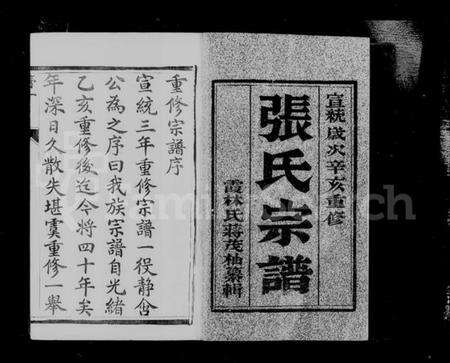 宣統歲次辛亥重修
張氏宗譜
霞林氏蔣茂柚纂輯
重修宗譜序
宣統三年重修宗譜一役靜含
公為之序曰我族宗譜自光緒
乙亥重修後迄今將四十年矣
年深日久散失堪虞重修一舉